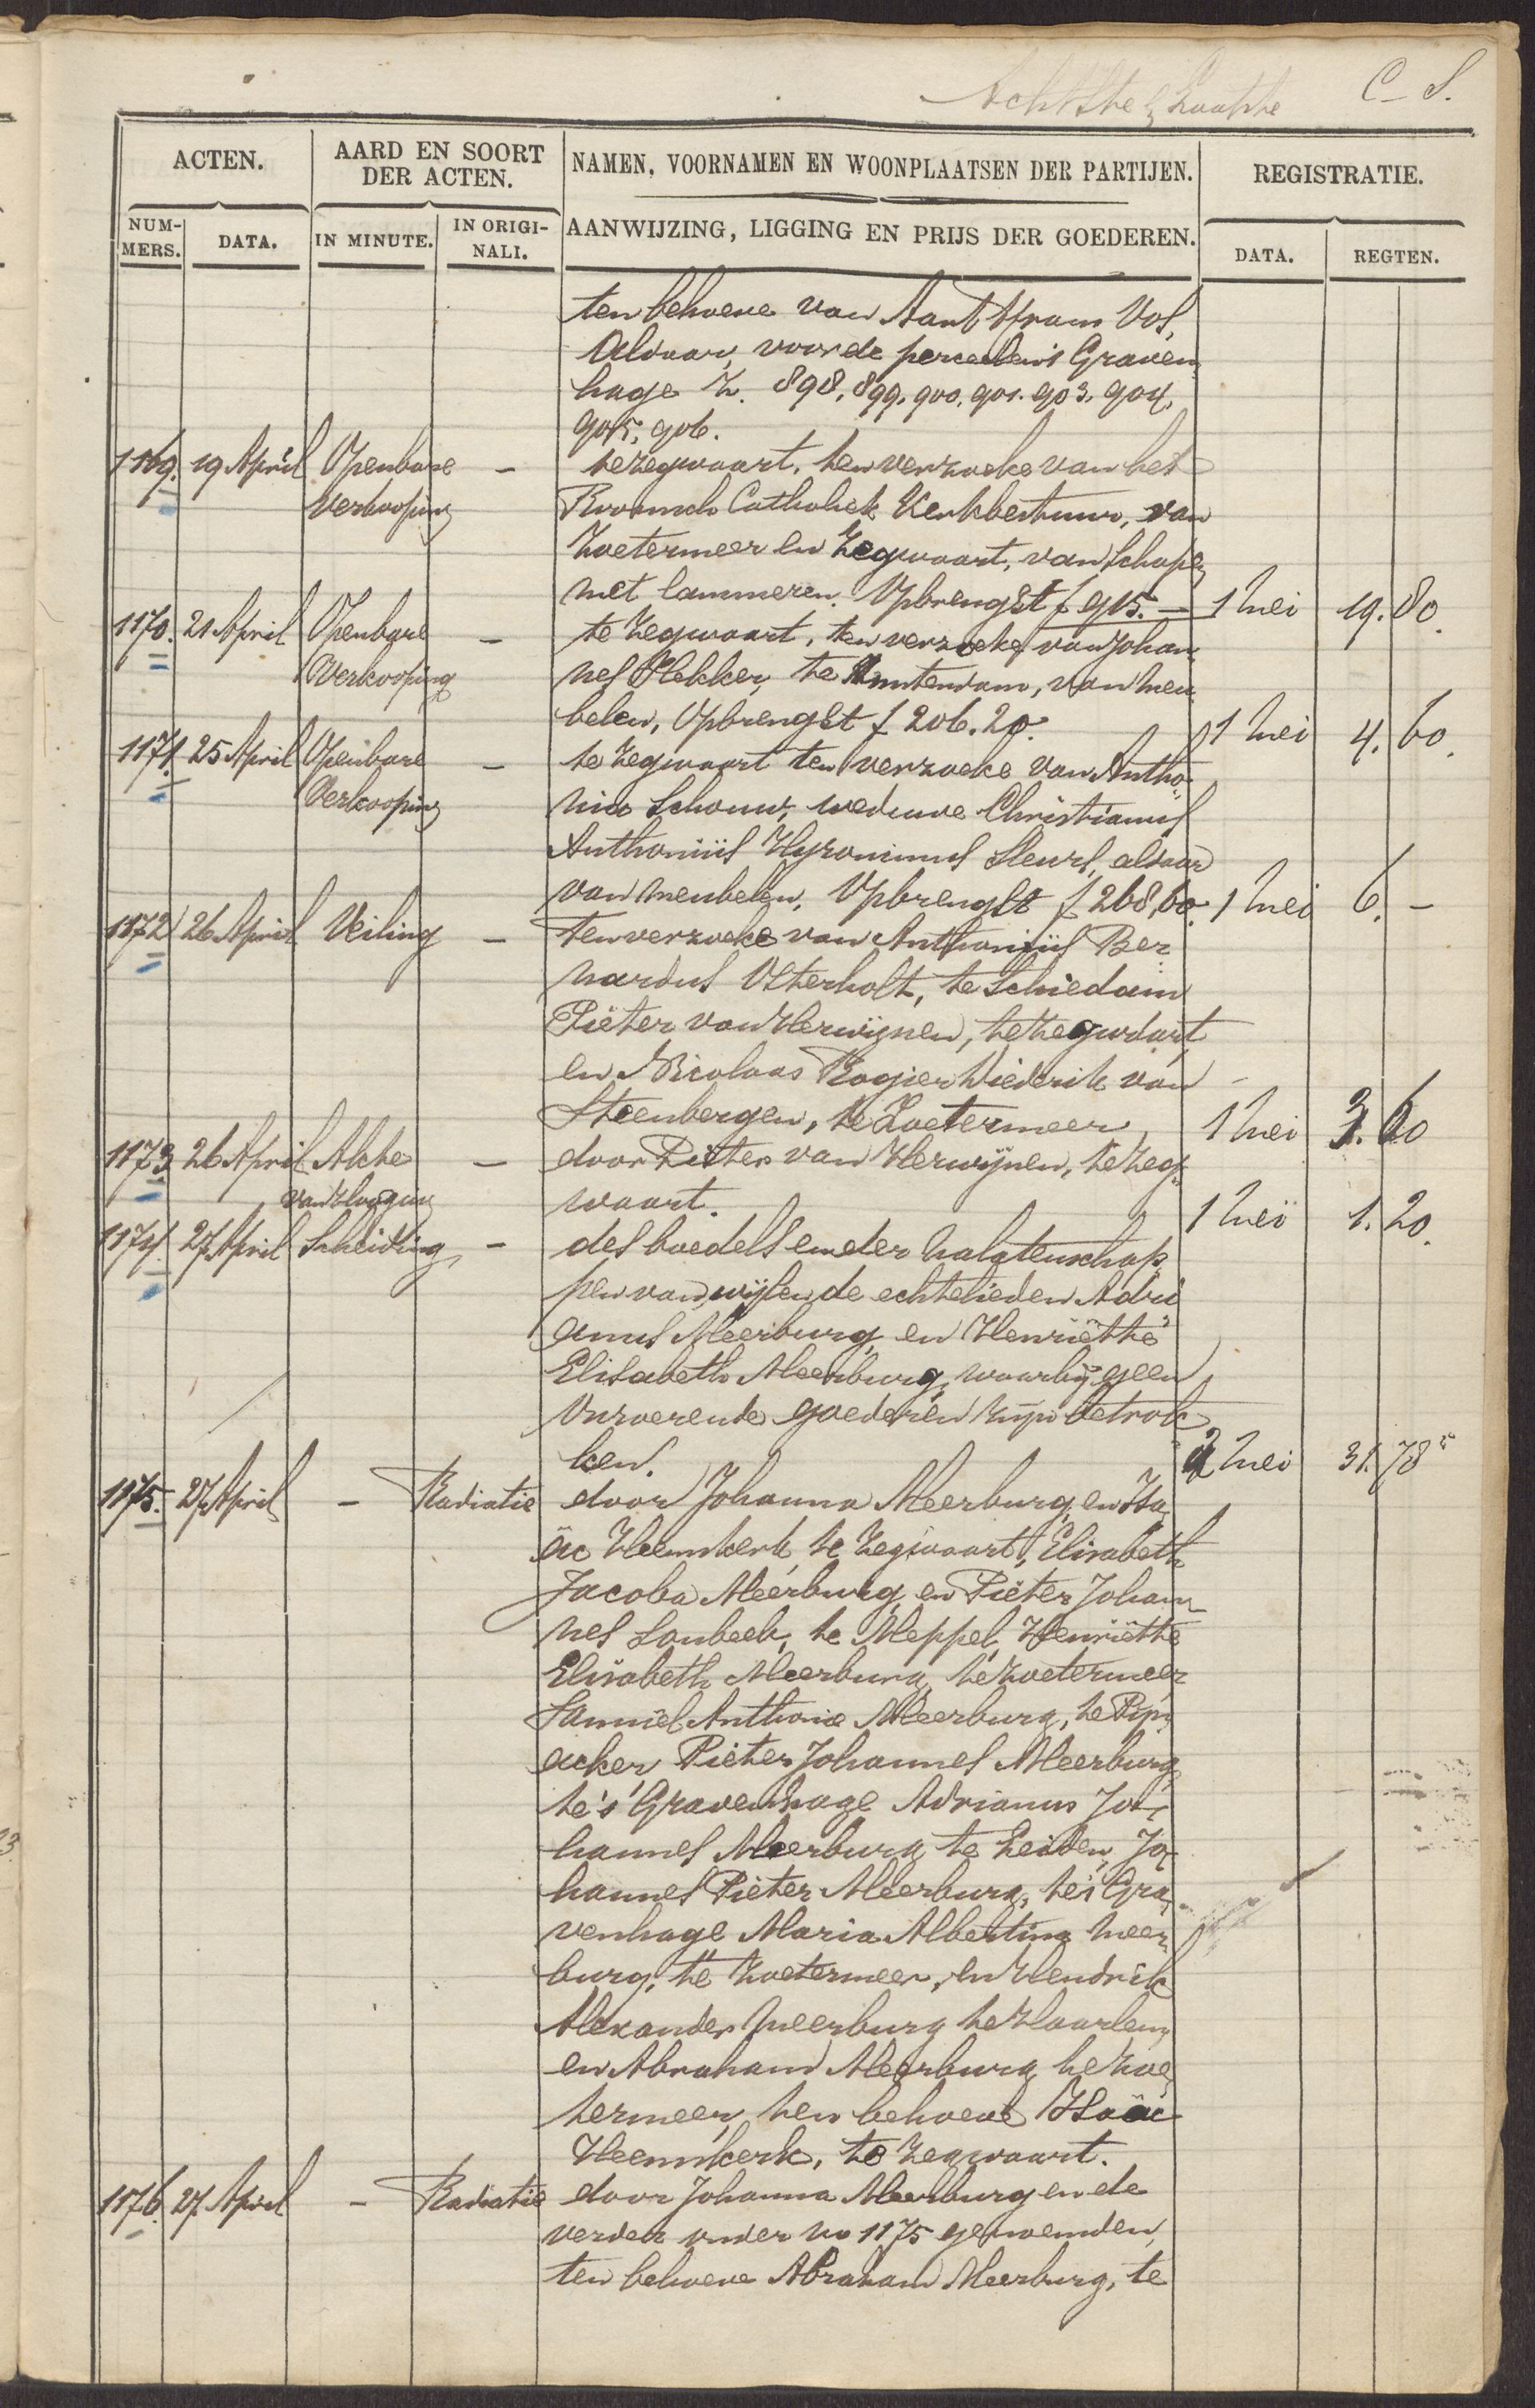 Achtste C. S.
ACTEN. AARD EN SOORT DER ACTEN. NAMEN, VOORNAMEN EN WOONPLAATSEN DER PARTIJEN. REGISTRATIE.
NUMMERS. DATA. IN MINUTE. IN ORIGINALI. AANWIJZING, LIGGING EN PRIJS DER GOEDEREN. DATA. REGTEN.
ten behoeve van Aart Vos,
aldaar, voor de perceelen 's Graven
hage Z. 898. 899. 900. 901. 903. 904.
905, 906.
1169. 19 April Openbare – te Zegwaart, ten verzoeke van het
Verkooping Roomsch Catholiek Kerkbestuur, van
Zoetermeer en Zegwaart, van schapen
met lammeren. Opbrengst f 915.– 1 Mei 19. 80.
1170. 21 April Openbare – te Zegwaart, ten verzoeke van Johan
Verkooping nes Plekker, te Amsterdam, van meu
belen, Opbrengst f 206.20. 1 Mei 4. 60.
1171. 25 April Openbare – te Zegwaart ten verzoeke van Antho
Verkooping nia Schouw, weduwe Christianus
Anthoniüs Hyronimus Sleurs, aldaar
van meubelen, Opbrengst f 268,60. 1 Mei 6. –
1172 26 April Veiling – Ten verzoeke van Anthoniüs Ber
nardus Osterholt, te Schiedam
Piëter van Herwijnen, te Zegwaart,
en Nicolaas Rogier Diederik van
Steenbergen, te Zoetermeer, 1 Mei 3. 60
1173. 26 April Akte – door Pieter van Herwijnen, te Zeg
van Hooging waart. 1 Mei 1. 20.
1174. 27 April Scheiding – des boedels en der nalatenschap
pen van wijlen de echtelieden Adri
anus Meerburg en Henriëtte
Elisabeth Meerburg, waarbij geen
onroerende goederen zijn betrok
ken. 2 Mei 31. 78⁵
1175. 27 April – Radiatie door Johanna Meerburg, en Isa
äc Heemskerk, te Zegwaart, Elisabeth
Jacoba Meerburg en Piëter Johan
nes Laubeek, te Meppel, Henriëtte
Elisabeth Meerburg, te Zoetermeer
Samuel Anthonie Meerburg, te Pijn
acker, Pieter Johannes Meerburg,
te 's Gravenhage Adrianus Jo
hannes Meerburg te Leiden, Jo
hannes Piëter Meerburg, te 's Gra
venhage Maria Albertina Meer
burg, te Zoetermeer, en Hendrik
Alexander Meerburg te Haarlem,
en Abraham Meerburg te Zoe
termeer, ten behoeve Isaäc
Heemskerk, te Zegwaart.
1176. 27 April – Radiatie door Johanna Meerburg en de
verder onder no 1175 genoemden,
ten behoeve Abraham Meerburg, te